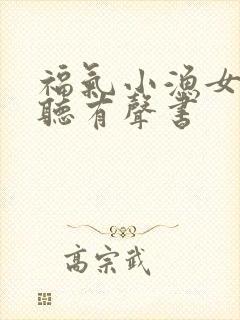 福氣小漁女
聽有聲書
高宗武